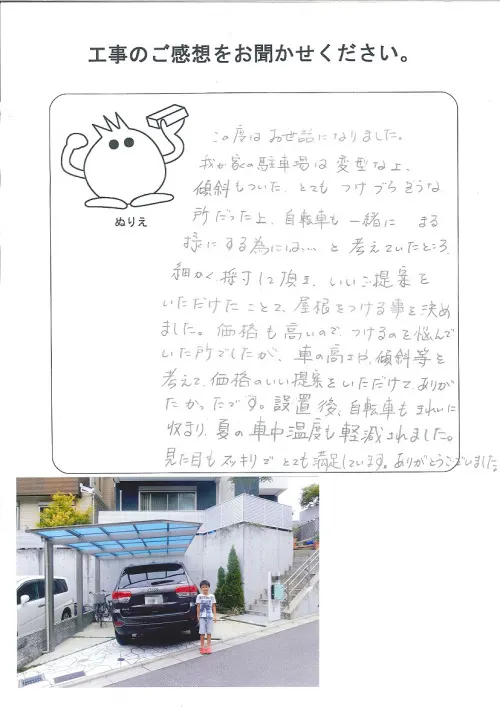 工事のご感想をお聞かせください。
ぬりえ
この度はお世話になりました。
我が家の駐車場は変型な上、
傾斜もついた、とてもつけづらそうな
所だった上、自転車も一緒に
様にする為には…と考えていたところ、
細かく採寸して頂き、いいご提案を
いただけたことで、屋根をつける事を決め
ました。価格も高いので、つけるのを悩んで
いた所でしたが、車の高さや、傾斜等を
考えて、価格のいい提案をいただけて、ありが
たかったです。設置後、自転車もきれいに
収まり、夏の車中温度も軽減されました。
見た目もスッキリでとても満足しています。ありがとうございました。